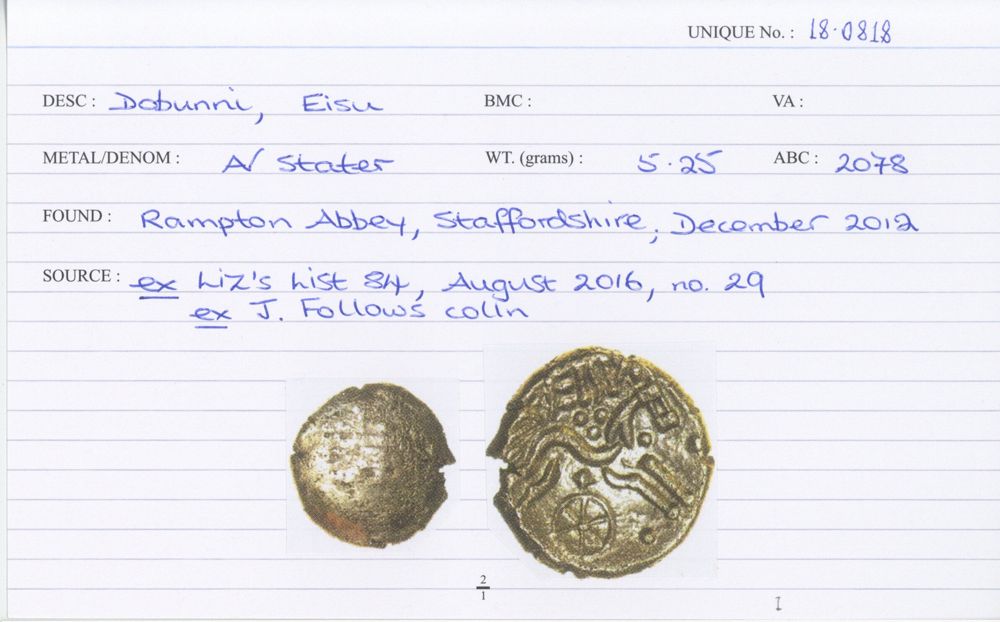 UNIQUE No. : 18·0818
DESC : Dobunni, Eisu BMC : VA :
METAL/DENOM : A/ Stater WT. (grams) : 5·25 ABC : 2078
FOUND : Rampton Abbey, Staffordshire, December 2012
SOURCE : ex Liz's List 84, August 2016, no. 29
ex J. Follows colln
2
1
I